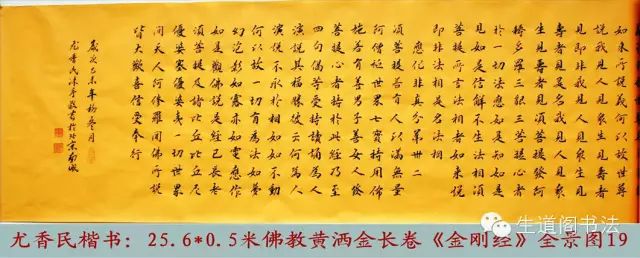 如來所説義何以故世尊
説我見人見衆生見壽者
見即非我見人見衆生見
壽者見是名我見人見衆
生見壽者見須菩提發阿
耨多羅三藐三菩提心者
於一切法應如是知如是
見如是信解不生法相須
菩提所言法相者如來説
即非法相是名法相
應化非真分第卅二
須菩提若有人以滿無量
阿僧祇世界七寶持用佈
施若有善男子善女人發
菩提心者持於此經乃至
四句偈等受持讀誦爲人
演説其福勝彼云何爲人
演説不取於相如如不動
何以故一切有爲法如夢
幻泡影如露亦如電應作
如是觀佛説是經已長老
須菩提及諸比丘比丘尼
優婆塞優婆夷一切世
間天人阿修羅聞佛所説
皆大歡喜信受奉行
歲次乙未年初冬月
尤香民沐手敬書於北京南城
生道阁书法
尤香民楷书：25.6*0.5米佛教黄洒金长卷《金刚经》全景图19